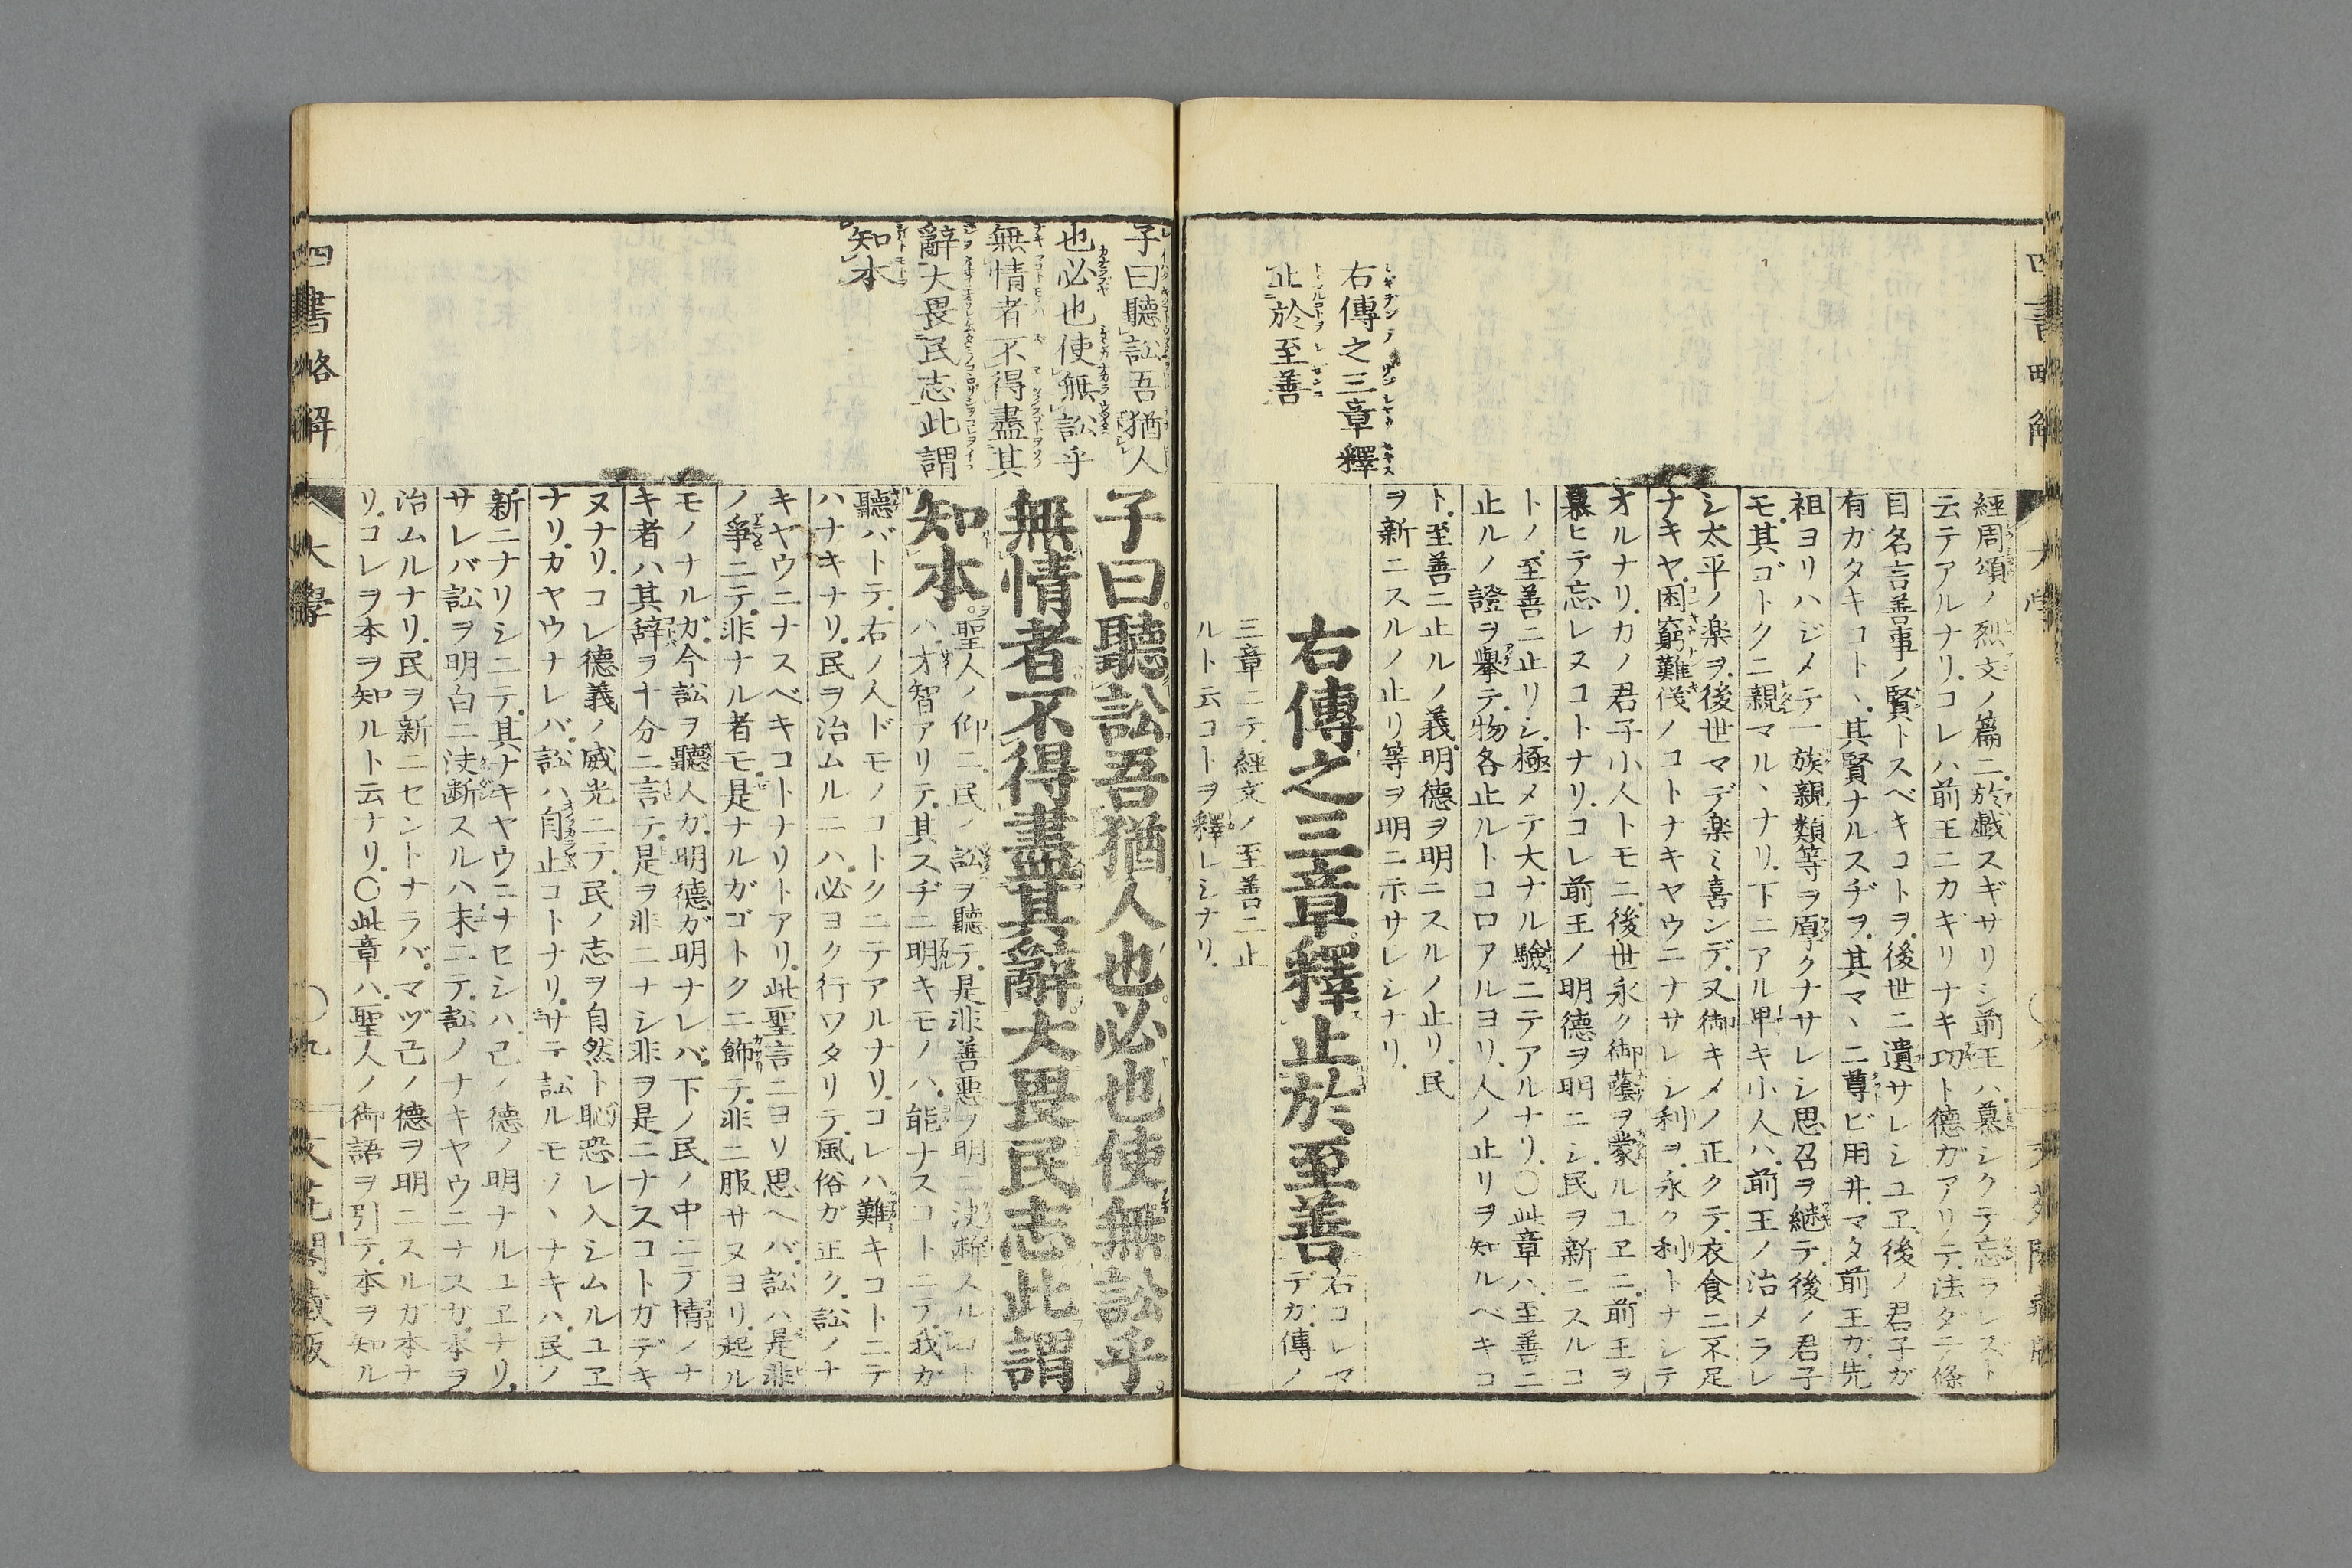 右傳之三章釋
止於至善
經周頌ノ烈文ノ篇ニ於戯スギサリシ前王ハ慕シクテ忘ラレスト
云テアルナリコレハ前王ニカギリナキ功ト德ガアリテ法ダテ條
目名言善事ノ賢トスベキコトヲ後世ニ遺サレシユヱ後ノ君子ガ
有ガタキコトヽ其賢ナルスヂヲ其マヽニ尊ビ用井マタ前王ガ先
祖ヨリハジメテ一族親類等ヲ厚クナサレシ思召ヲ継テ後ノ君子
モ其ゴトクニ親マルヽナリ下ニアル卑キ小人ハ前王ノ治メラレ
シ太平ノ楽ヲ後世マデ楽ミ喜ンデ又御キメノ正クテ衣食ニ不足
ナキヤ困窮難儀ノコトナキヤウニナサレシ利ヲ永ク利トナシテ
オルナリカノ君子小人トモニ後世永ク御蔭ヲ蒙ルユヱニ前王ヲ
慕ヒテ忘レヌコトナリコレ前王ノ明德ヲ明ニシ民ヲ新ニスルコ
トノ至善ニ止リシ極メテ大ナル驗ニテアルナリ〇此章ハ至善ニ
止ルノ證ヲ擧テ物各止ルトコロアルヨリ人ノ止リヲ知ルベキコ
ト至善ニ止ルノ義明德ヲ明ニスルノ止リ民
ヲ新ニスルノ止リ等ヲ明ニ示サレシナリ
右傳之三章釋止於至善
右コレマ
デガ傳ノ
三章ニテ經文ノ至善ニ止
ルト云コトヲ釋レシナリ
子曰聽訟吾猶人
也必也使無訟乎
無情者不得盡其
辭大畏民志此謂
知本
子曰聽訟吾猶人也必也使無訟乎
無情者不得盡其辭大畏民志此謂
知本
聖人ノ仰ニ民ノ訟ヲ聽テ是非善惡ヲ明ニ决断スルコト
ハ才智アリテ其スヂニ明キモノハ能ナスコトニテ我ガ
聽バトテ右ノ人ドモノコトクニテアルナリコレハ難キコトニテ
ハナキナリ民ヲ治ムルニハ必ヨク行ワタリテ風俗ガ正ク訟ノナ
キヤウニナスベキコトナリトアリ此聖言ニヨリ思ヘバ訟ハ是非
ノ爭ニテ非ナル者モ是ナルガゴトクニ飾テ非ニ服サヌヨリ起ル
モノナルガ今訟ヲ聽人ガ明德ガ明ナレバ下ノ民ノ中ニテ情ノナ
キ者ハ其辞ヲ十分ニ言テ是ヲ非ニナシ非ヲ是ニナスコトガデキ
ヌナリコレ德義ノ威光ニテ民ノ志ヲ自然ト恥恐レ入シムルユヱ
ナリカヤウナレバ訟ハ自止コトナリサテ訟ルモノヽナキハ民ノ
新ニナリシニテ其ナキヤウニナセシハ己ノ德ノ明ナルユヱナリ
サレバ訟ヲ明白ニ决断スルハ末ニテ訟ノナキヤウニナスガ本ヲ
治ムルナリ民ヲ新ニセントナラバマヅ己ノ德ヲ明ニスルガ本ナ
リコレヲ本ヲ知ルト云ナリ〇此章ハ聖人ノ御語ヲ引テ本ヲ知ル
四書略解
大學
〇九